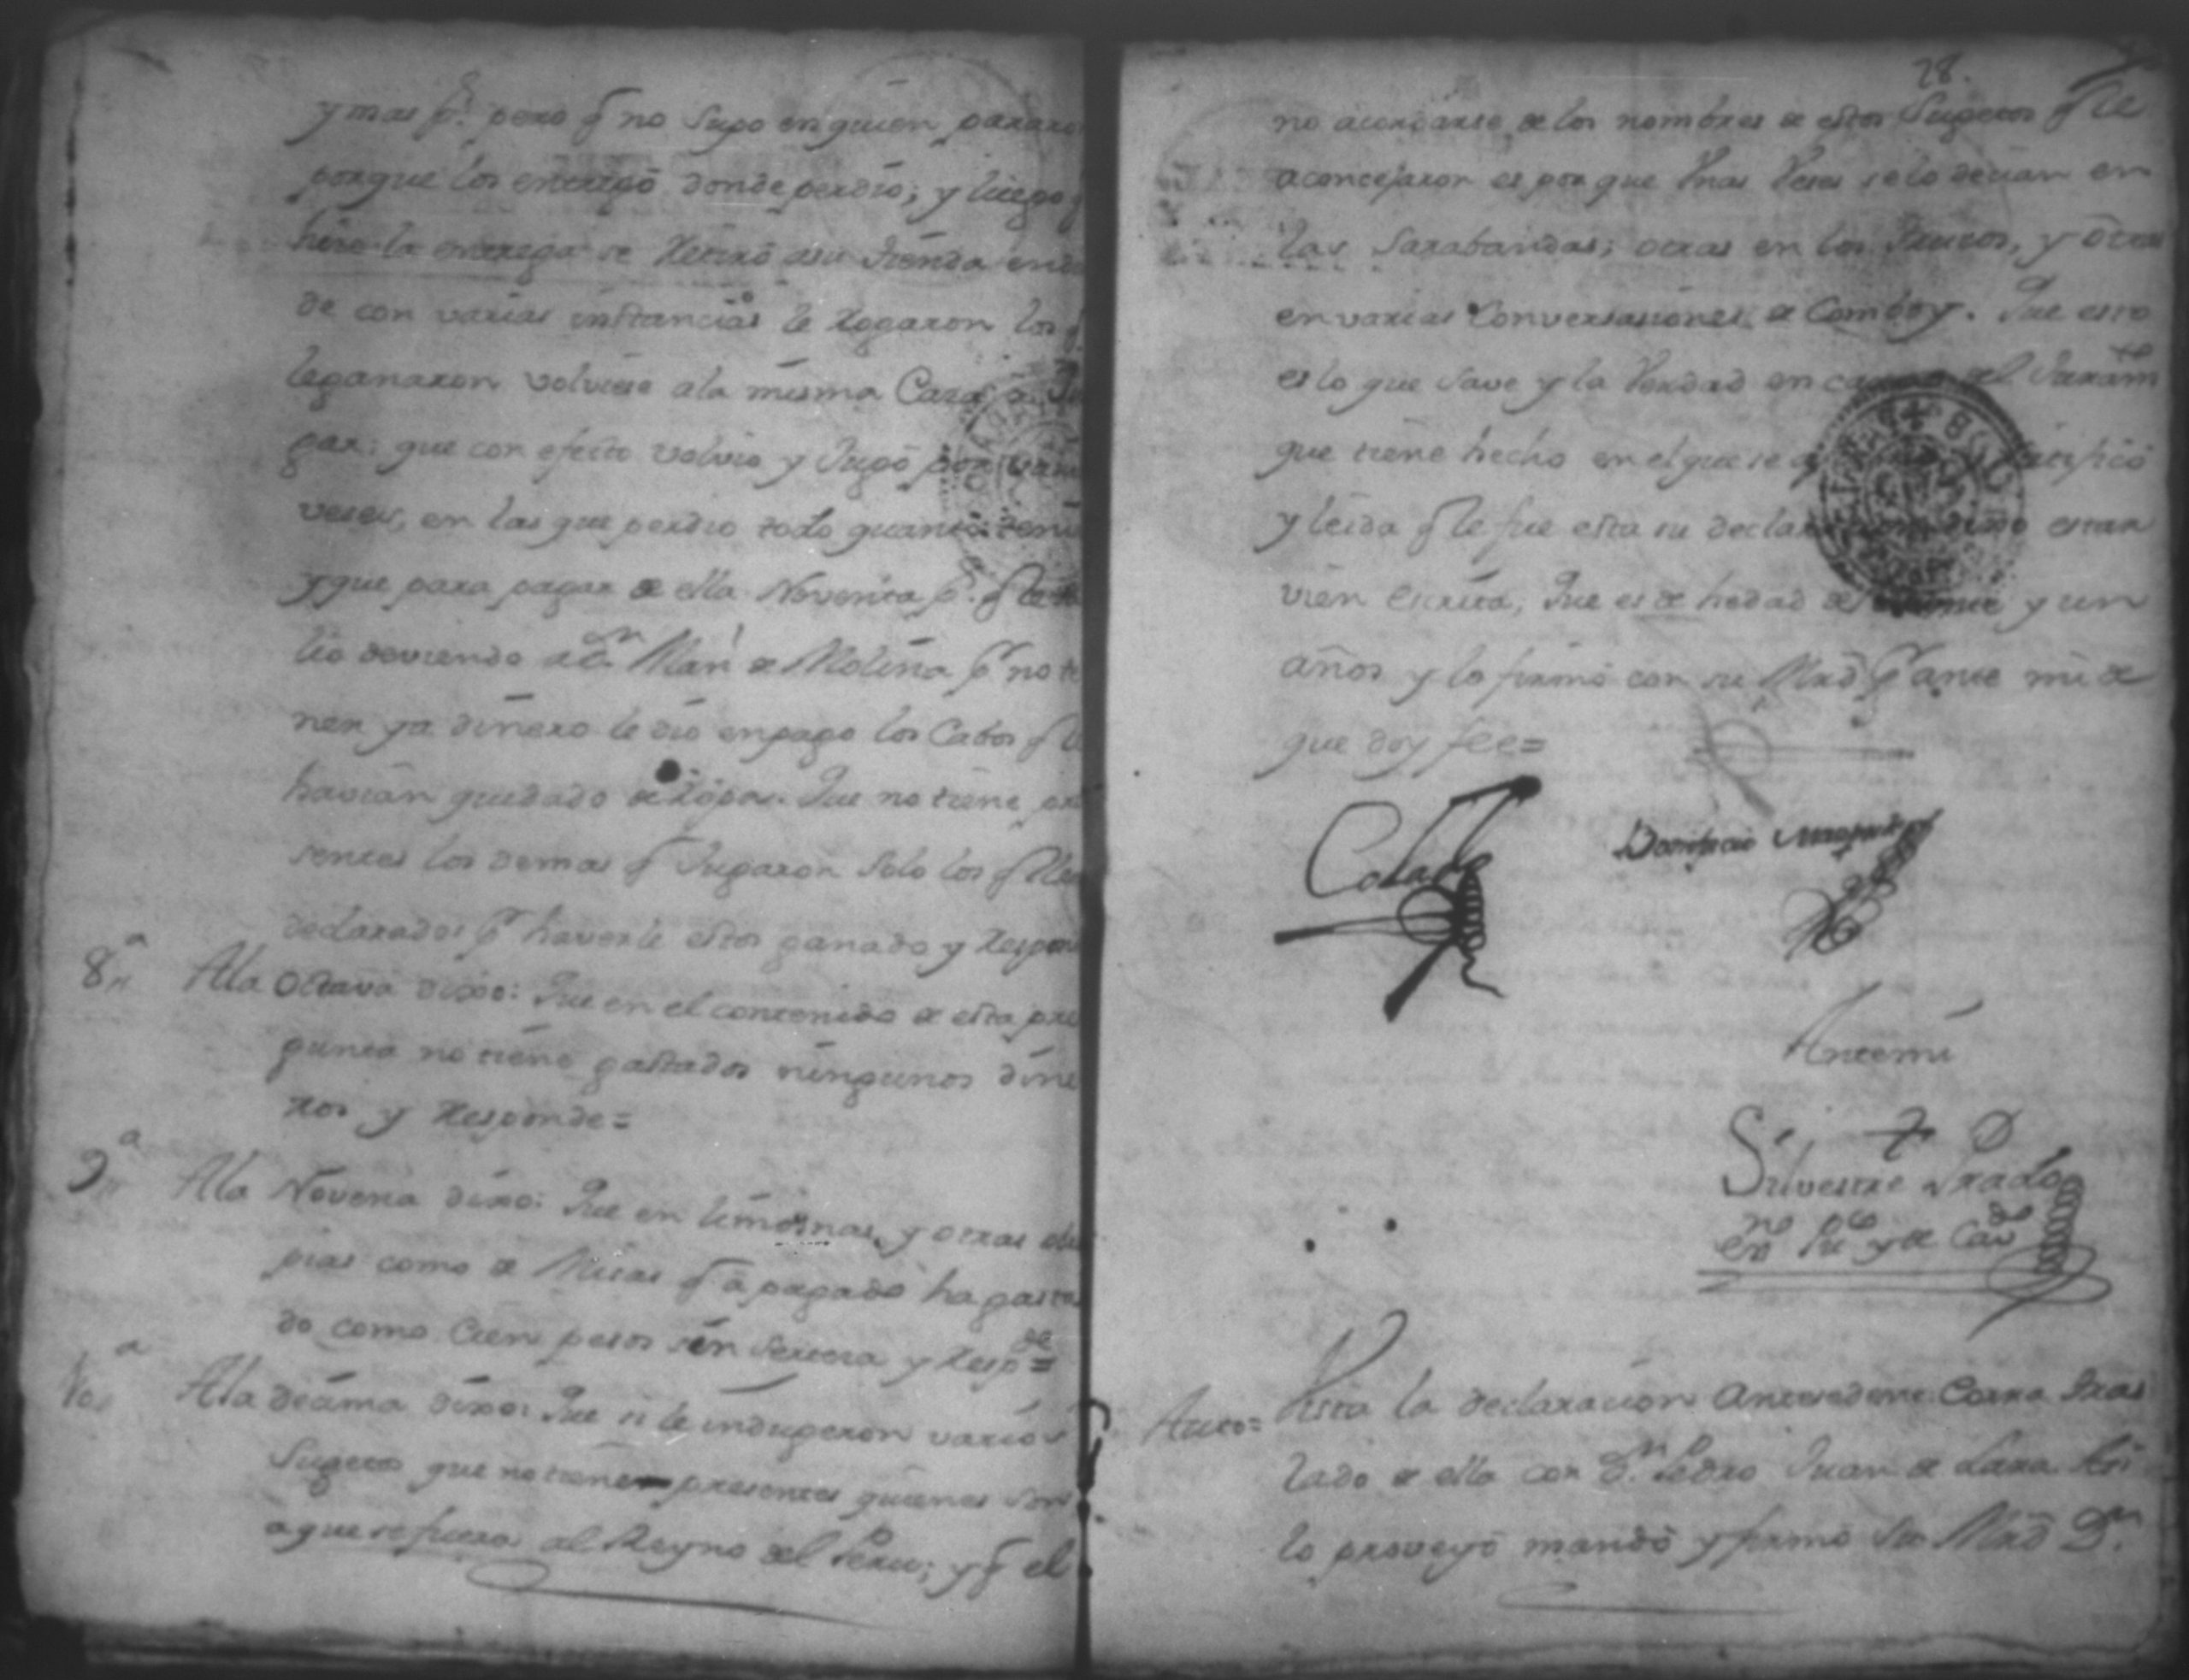 y mas p.s pero q̃ no Supo en quien pararo
porque los entregò donde perdio; y luego q
hizo la entrega se Retirò a su tienda end
de con varias instancias le Rogaron los q
le ganaron volviese a la misma Casa a Ju
gar; que con efecto volvio y Jugò por varia
veses, en las que perdio todo quanto tenia
y que para pagar de ella Noventa p.s q̃
devendo a Dn Marn de Molina pr no te
ner ya dinero le dio en pago los Cabos q̃ le
havian quedado de Ropa. Que no tiene pre
sentes los demas q̃ Jugaron Solo los q̃
declarados pr haverle estos ganado y Respon
8.a A la Octava dixo: Que en el contenido de esta pre
gunta no tiene gastados ningunos dine
ros y Responde=
9.a A la Novena dixo: Que en limosnas, y otras ob
pias como de Misas q̃ à pagado ha gasta
do como Cien pesos y Respde=
10.a A la decima dixo: Que si le indugeron varios
Sugetos que no tiene presentes quienes son
a que se fuera al Reyno del Peru; y q̃ el
28.
no acordarse de los nombres de estos Sugetos q̃ le
aconcejaron es por que Unas Veses se lo decian en
las Sarabandas; otras en los Trucos, y otras
en varias Conversasiones de Comboy. Que esto
es lo que Save y la Verdad en cargo del Juramto
que tiene hecho en el que se ratificò
y leida q̃ le fue esta su declaracion dixo estar
vien escrita, Que es de hedad de y un
años y lo firmò con su Mrd pr ante mi de
que doy fee=
Bonifacio
Antemi
Silvestre Prado
esno puco y de Cavdo
Auto= Vista la declaracion Antesedente Corra Tras
lado de ella con Dn Pedro Juan de Lara Asi
lo proveyò mandò y firmò Su Mrd Dn